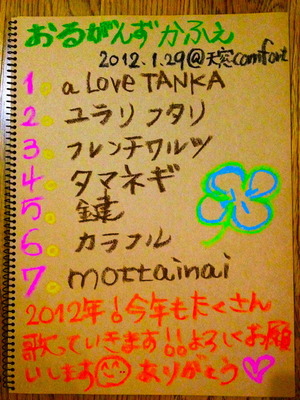 おるがんずかふぇ
2012.1.29@天窓comfort
1. a Love TANKA
2. ユラリフタリ
3. フレンチワルツ
4. タマネギ
5. 鍵
6. カラフル
7. mottainai
2012年!今年もたくさん
歌っていきます!!よろしくお願
いします ありがとう